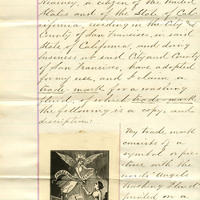 Kearney, a citizen of the United
States and of the State of Cal-
ifornia, residing in the City and
County of San Francisco, in said
State of California, and doing
business in said City and County
of San Francisco, have adopted
for my use, and I claim, a
trade mark for a washing
fluid, of which trade mark
the following is a copy, and
description:
My trade mark
consists of a
symbol
with the
words "Angels
Washing Fluid"
printed on a